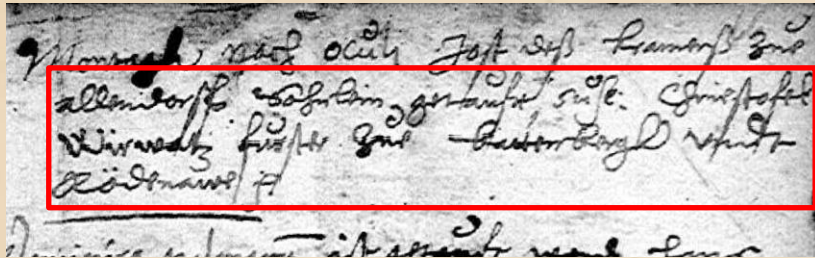 Montagh nach oculi Jost deß kramerß zue
allendorff söhnlein getauft susc: Christofel
Wirwatz furster zue battenbergk vndt
Rödenauw
Dominica ist getauft